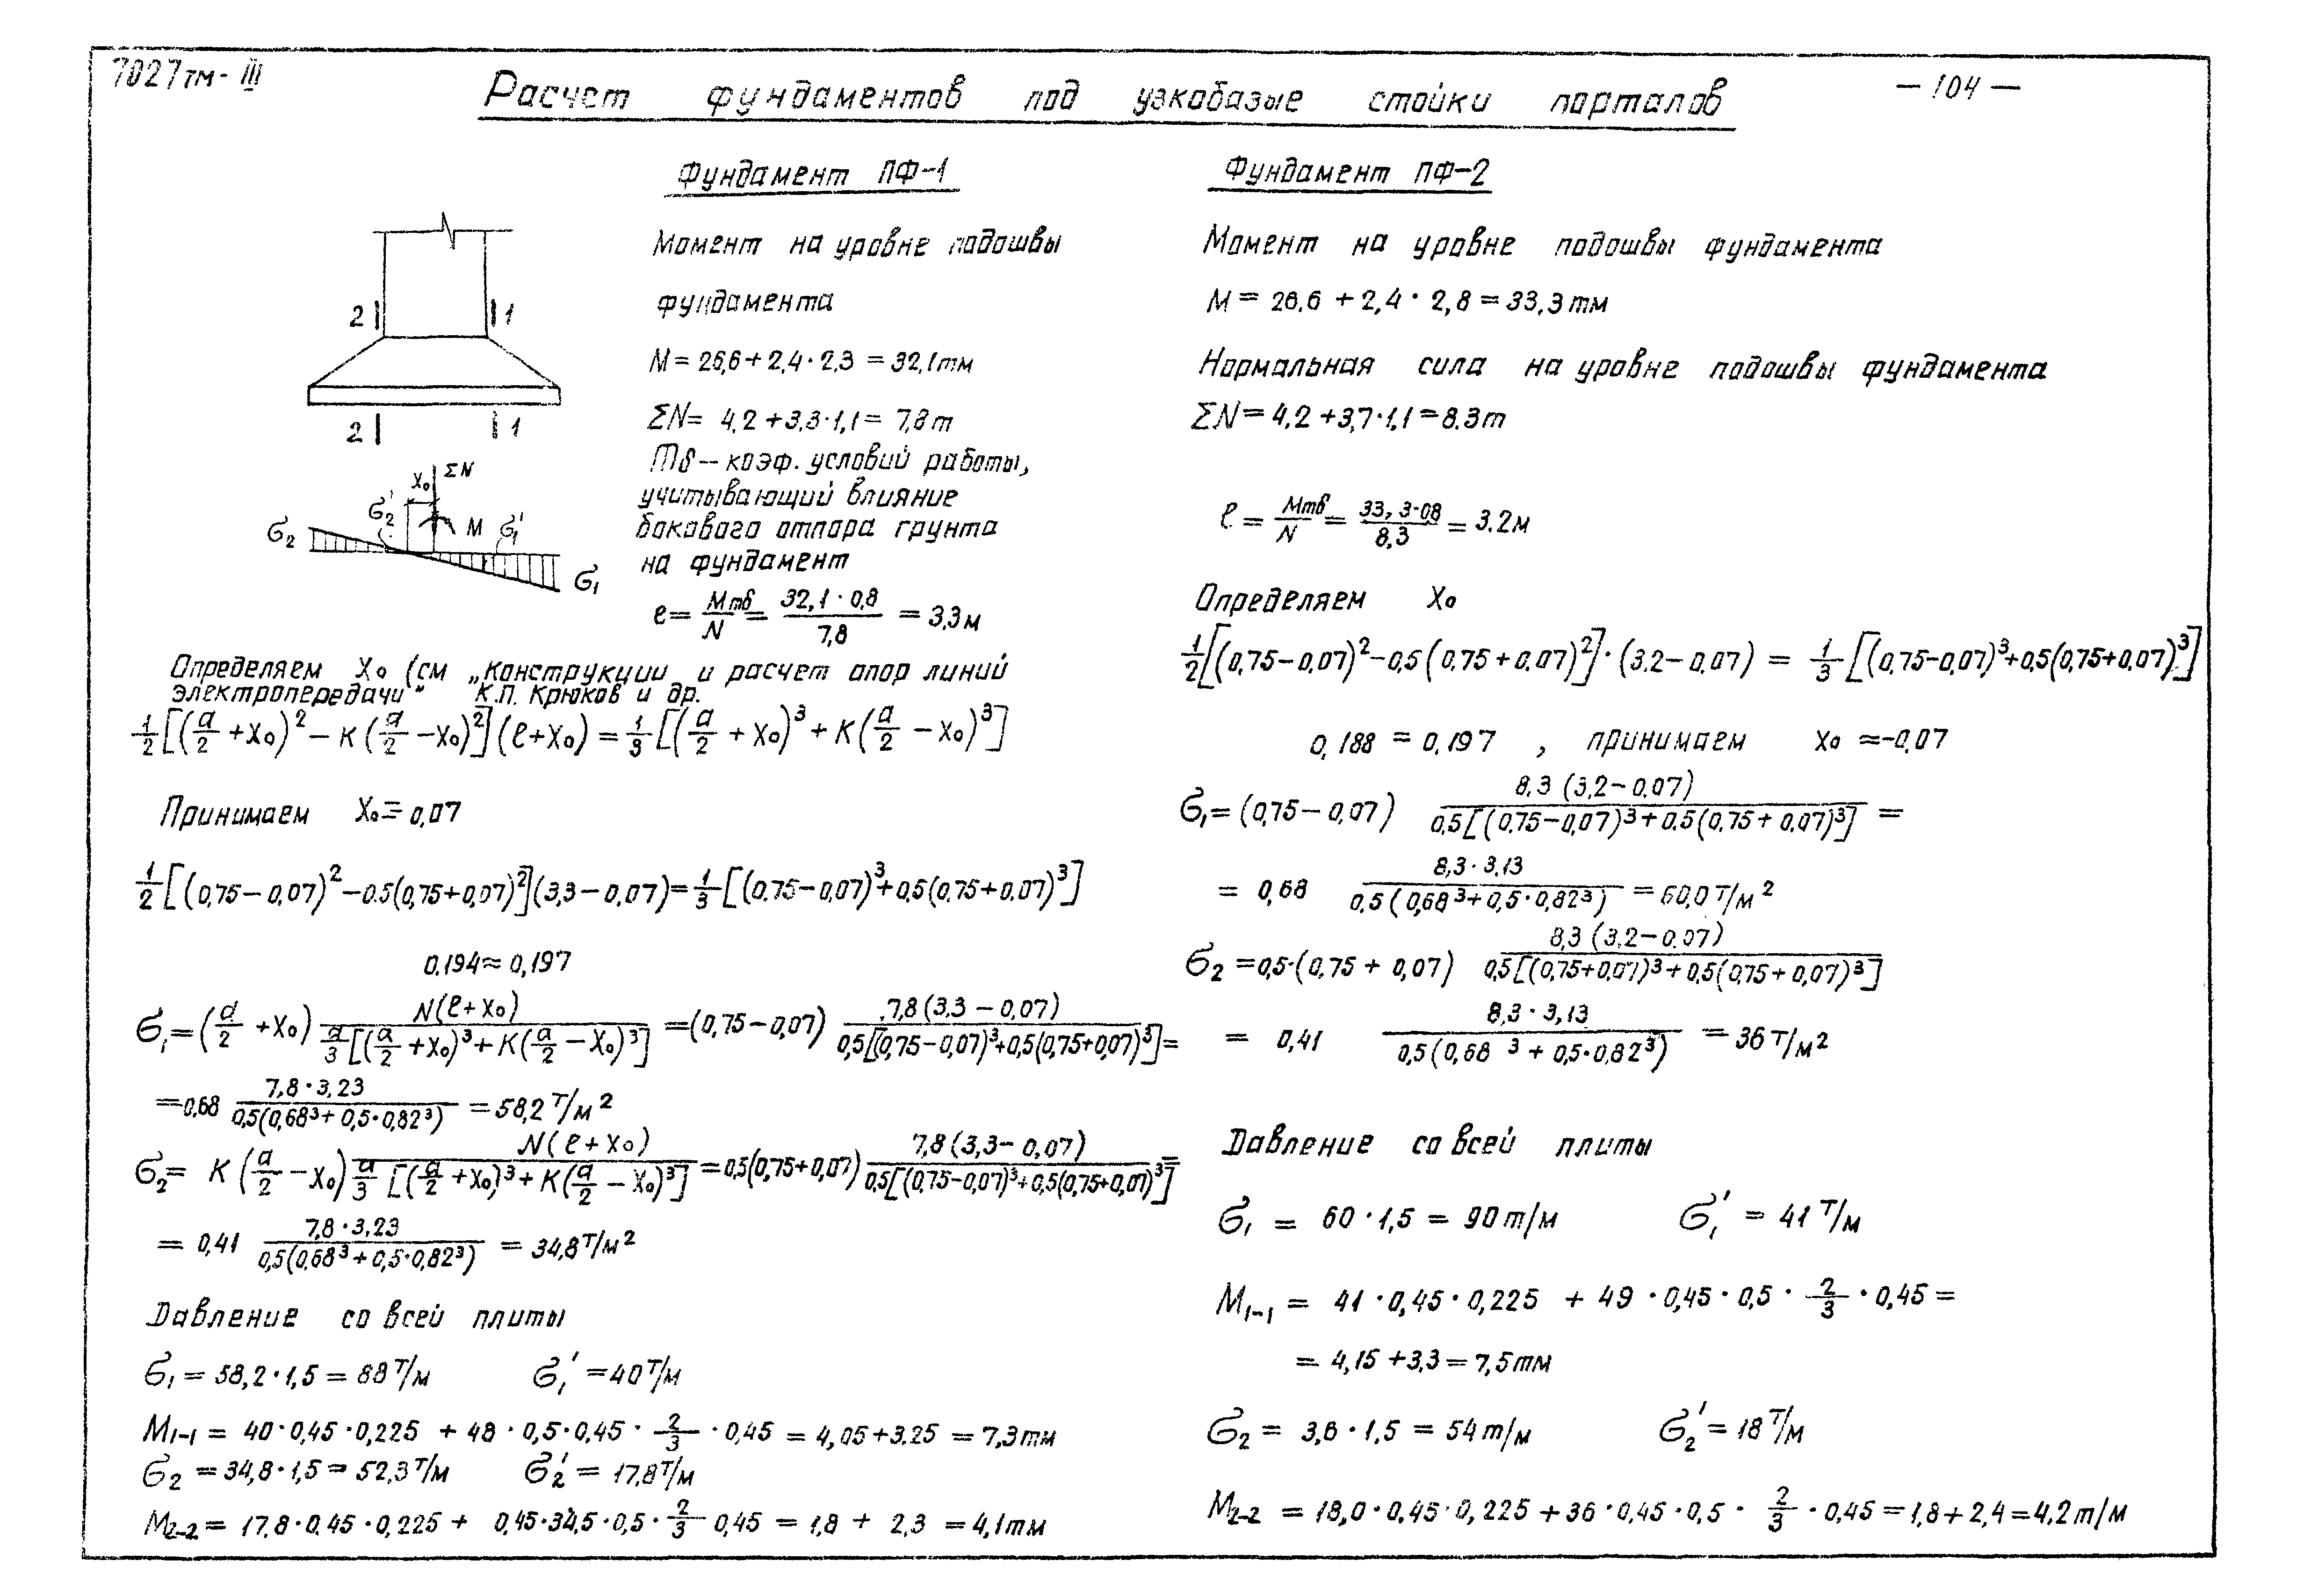 7027тм-III
Расчет фундаментов под узкобазые стойки порталов
— 104 —
Фундамент ПФ-1
Момент на уровне подошвы
фундамента
M = 26,6 + 2,4 · 2,3 = 32,1 тм
ΣN = 4,2 + 3,3 · 1,1 = 7,8 т
mб — коэф. условий работы,
учитывающий влияние
бокового отпора грунта
на фундамент
e = Mmб/N = 32,1 · 0,8/7,8 = 3,3 м
2 1
2 1
x₀ ΣN
σ₂ σ₂' M σ₁' σ₁
Определяем x₀ (см „Конструкции и расчет опор линий
электропередачи“ К.П. Крюков и др.
1/2 [(a/2 + x₀)² − K(a/2 − x₀)²](e + x₀) = 1/3 [(a/2 + x₀)³ + K(a/2 − x₀)³]
Принимаем x₀ = 0,07
1/2 [(0,75 − 0,07)² − 0.5(0,75 + 0,07)²](3,3 − 0,07) = 1/3 [(0.75 − 0,07)³ + 0,5(0,75 + 0,07)³]
0,194 ≈ 0,197
σ₁ = (a/2 + x₀) N(e + x₀)/a/3 [(a/2 + x₀)³ + K(a/2 − x₀)³] = (0,75 − 0,07) 7,8(3,3 − 0,07)/0,5[(0,75 − 0,07)³ + 0,5(0,75 + 0,07)³] =
= 0,68 7,8 · 3,23/0,5(0,68³ + 0,5 · 0,82³) = 58,2 т/м²
σ₂ = K(a/2 − x₀) N(e + x₀)/a/3 [(a/2 + x₀)³ + K(a/2 − x₀)³] = 0,5(0,75 + 0,07) 7,8(3,3 − 0,07)/0,5[(0,75 − 0,07)³ + 0,5(0,75 + 0,07)³] =
= 0,41 7,8 · 3,23/0,5(0,68³ + 0,5 · 0,82³) = 34,8 т/м²
Давление со всей плиты
σ₁ = 58,2 · 1,5 = 88 т/м σ₁' = 40 т/м
M₁₋₁ = 40 · 0,45 · 0,225 + 48 · 0,5 · 0,45 · 2/3 · 0,45 = 4,05 + 3.25 = 7,3 тм
σ₂ = 34,8 · 1,5 = 52,3 т/м σ₂' = 17,8 т/м
M₂₋₂ = 17,8 · 0.45 · 0,225 + 0,45 · 34,5 · 0,5 · 2/3 0,45 = 1,8 + 2,3 = 4,1 тм
Фундамент ПФ-2
Момент на уровне подошвы фундамента
M = 26.6 + 2,4 · 2,8 = 33,3 тм
Нормальная сила на уровне подошвы фундамента
ΣN = 4,2 + 3,7 · 1,1 = 8.3 т
e = Mmб/N = 33,3 · 08/8,3 = 3.2 м
Определяем x₀
1/2 [(0,75 − 0,07)² − 0,5(0,75 + 0,07)²] · (3.2 − 0,07) = 1/3 [(0,75 − 0,07)³ + 0,5(0,75 + 0,07)³]
0,188 = 0,197 , принимаем x₀ ≈ −0,07
σ₁ = (0,75 − 0,07) 8,3 (3,2 − 0,07)/0,5[(0,75 − 0,07)³ + 0.5(0,75 + 0,07)³] =
= 0,68 8,3 · 3,13/0,5(0,68³ + 0,5 · 0,82³) = 60,0 т/м²
σ₂ = 0,5 · (0,75 + 0,07) 8,3 (3,2 − 0,07)/0,5[(0,75 + 0,07)³ + 0,5(0,75 + 0,07)³]
= 0,41 8,3 · 3,13/0,5(0,68³ + 0,5 · 0,82³) = 36 т/м²
Давление со всей плиты
σ₁ = 60 · 1,5 = 90 т/м σ₁' = 41 т/м
M₁₋₁ = 41 · 0,45 · 0,225 + 49 · 0,45 · 0,5 · 2/3 · 0,45 =
= 4,15 + 3,3 = 7,5 тм
σ₂ = 3,6 · 1,5 = 54 т/м σ₂' = 18 т/м
M₂₋₂ = 18,0 · 0,45 · 0,225 + 36 · 0,45 · 0,5 · 2/3 · 0,45 = 1,8 + 2,4 = 4,2 т/м